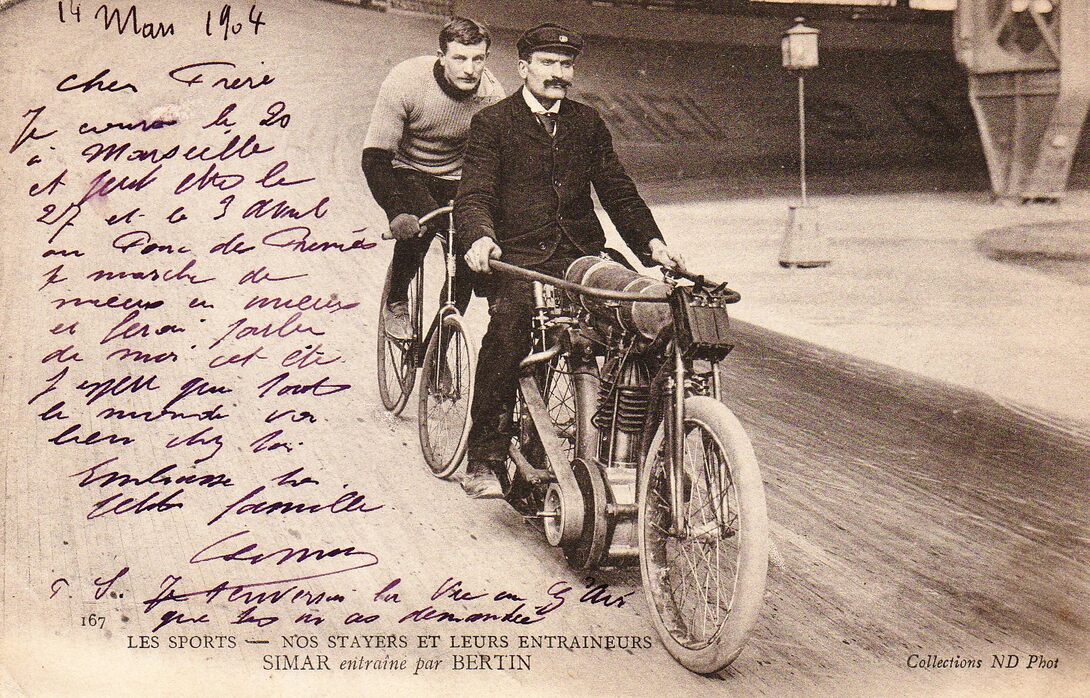 14 Mars 1904
Cher Frère
Je cours le 20
à Marseille
et peut être le
27 et le 3 Avril
au Parc des
je marche de
mieux en mieux
et ferai parler
de moi cet été
J'espère que tout
le monde va
bien chez toi
Embrasse ta
petite famille
P. S. Je la Vie au G'Air
que tu m'as demandée
167
LES SPORTS — NOS STAYERS ET LEURS ENTRAINEURS
SIMAR entraîné par BERTIN
Collections ND Phot